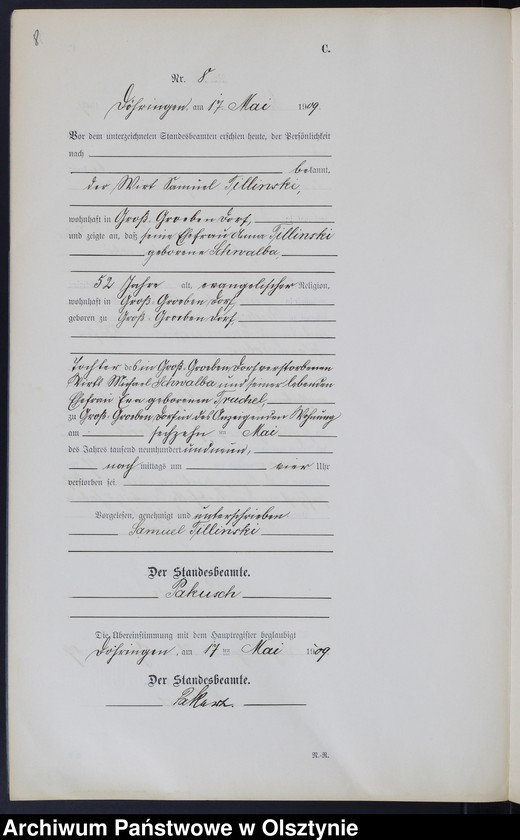 8
C.
Nr. 8.
Döhringen, am 17. Mai 1909.
Vor dem unterzeichneten Standesbeamten erschien heute, der Persönlichkeit
nach
bekannt,
der Wirt Samuel Tillinski,
wohnhaft in Groß. Groeben Dorf,
und zeigte an, daß seine Ehefrau Anna Tillinski
geborene Schwalba,
52 Jahre alt, evangelischer Religion,
wohnhaft in Groß. Groeben Dorf,
geboren zu Groß. Groeben Dorf,
Tochter des in Groß. Groeben Dorf verstorbenen
Wirts Michael Schwalba und seiner lebenden
Ehefrau Eva geborenen Truchel,
zu Groß. Groeben Dorf in des Anzeigenden Wohnung
am sechzehn ten Mai
des Jahres tausend neunhundert und neun,
nach mittags um vier Uhr
verstorben sei.
Vorgelesen, genehmigt und unterschrieben
Samuel Tillinski
Der Standesbeamte.
Pakusch
Die Übereinstimmung mit dem Hauptregister beglaubigt
Döhringen, am 17 ten Mai 1909.
Der Standesbeamte.
R.-R.
Archiwum Państwowe w Olsztynie